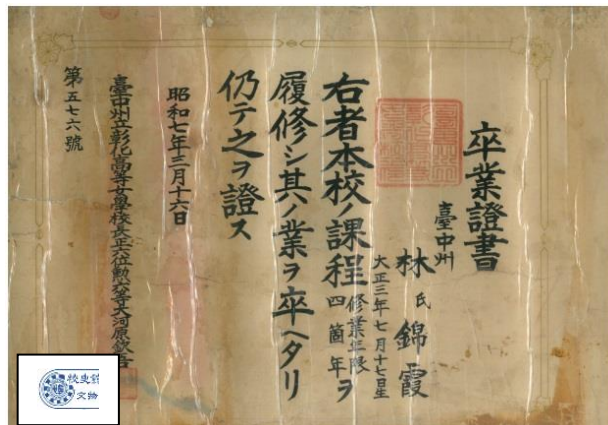 卒業證書
臺中州
林氏錦霞
大正三年七月十七日生
右者本校ノ課程修業年限四箇年ヲ
履修シ其ノ業ヲ卒ヘタリ
仍テ之ヲ證ス
昭和七年三月十六日
臺中州立彰化高等女學校長正六位勲六等大河原欽吾
第五七六號
校史館
文物